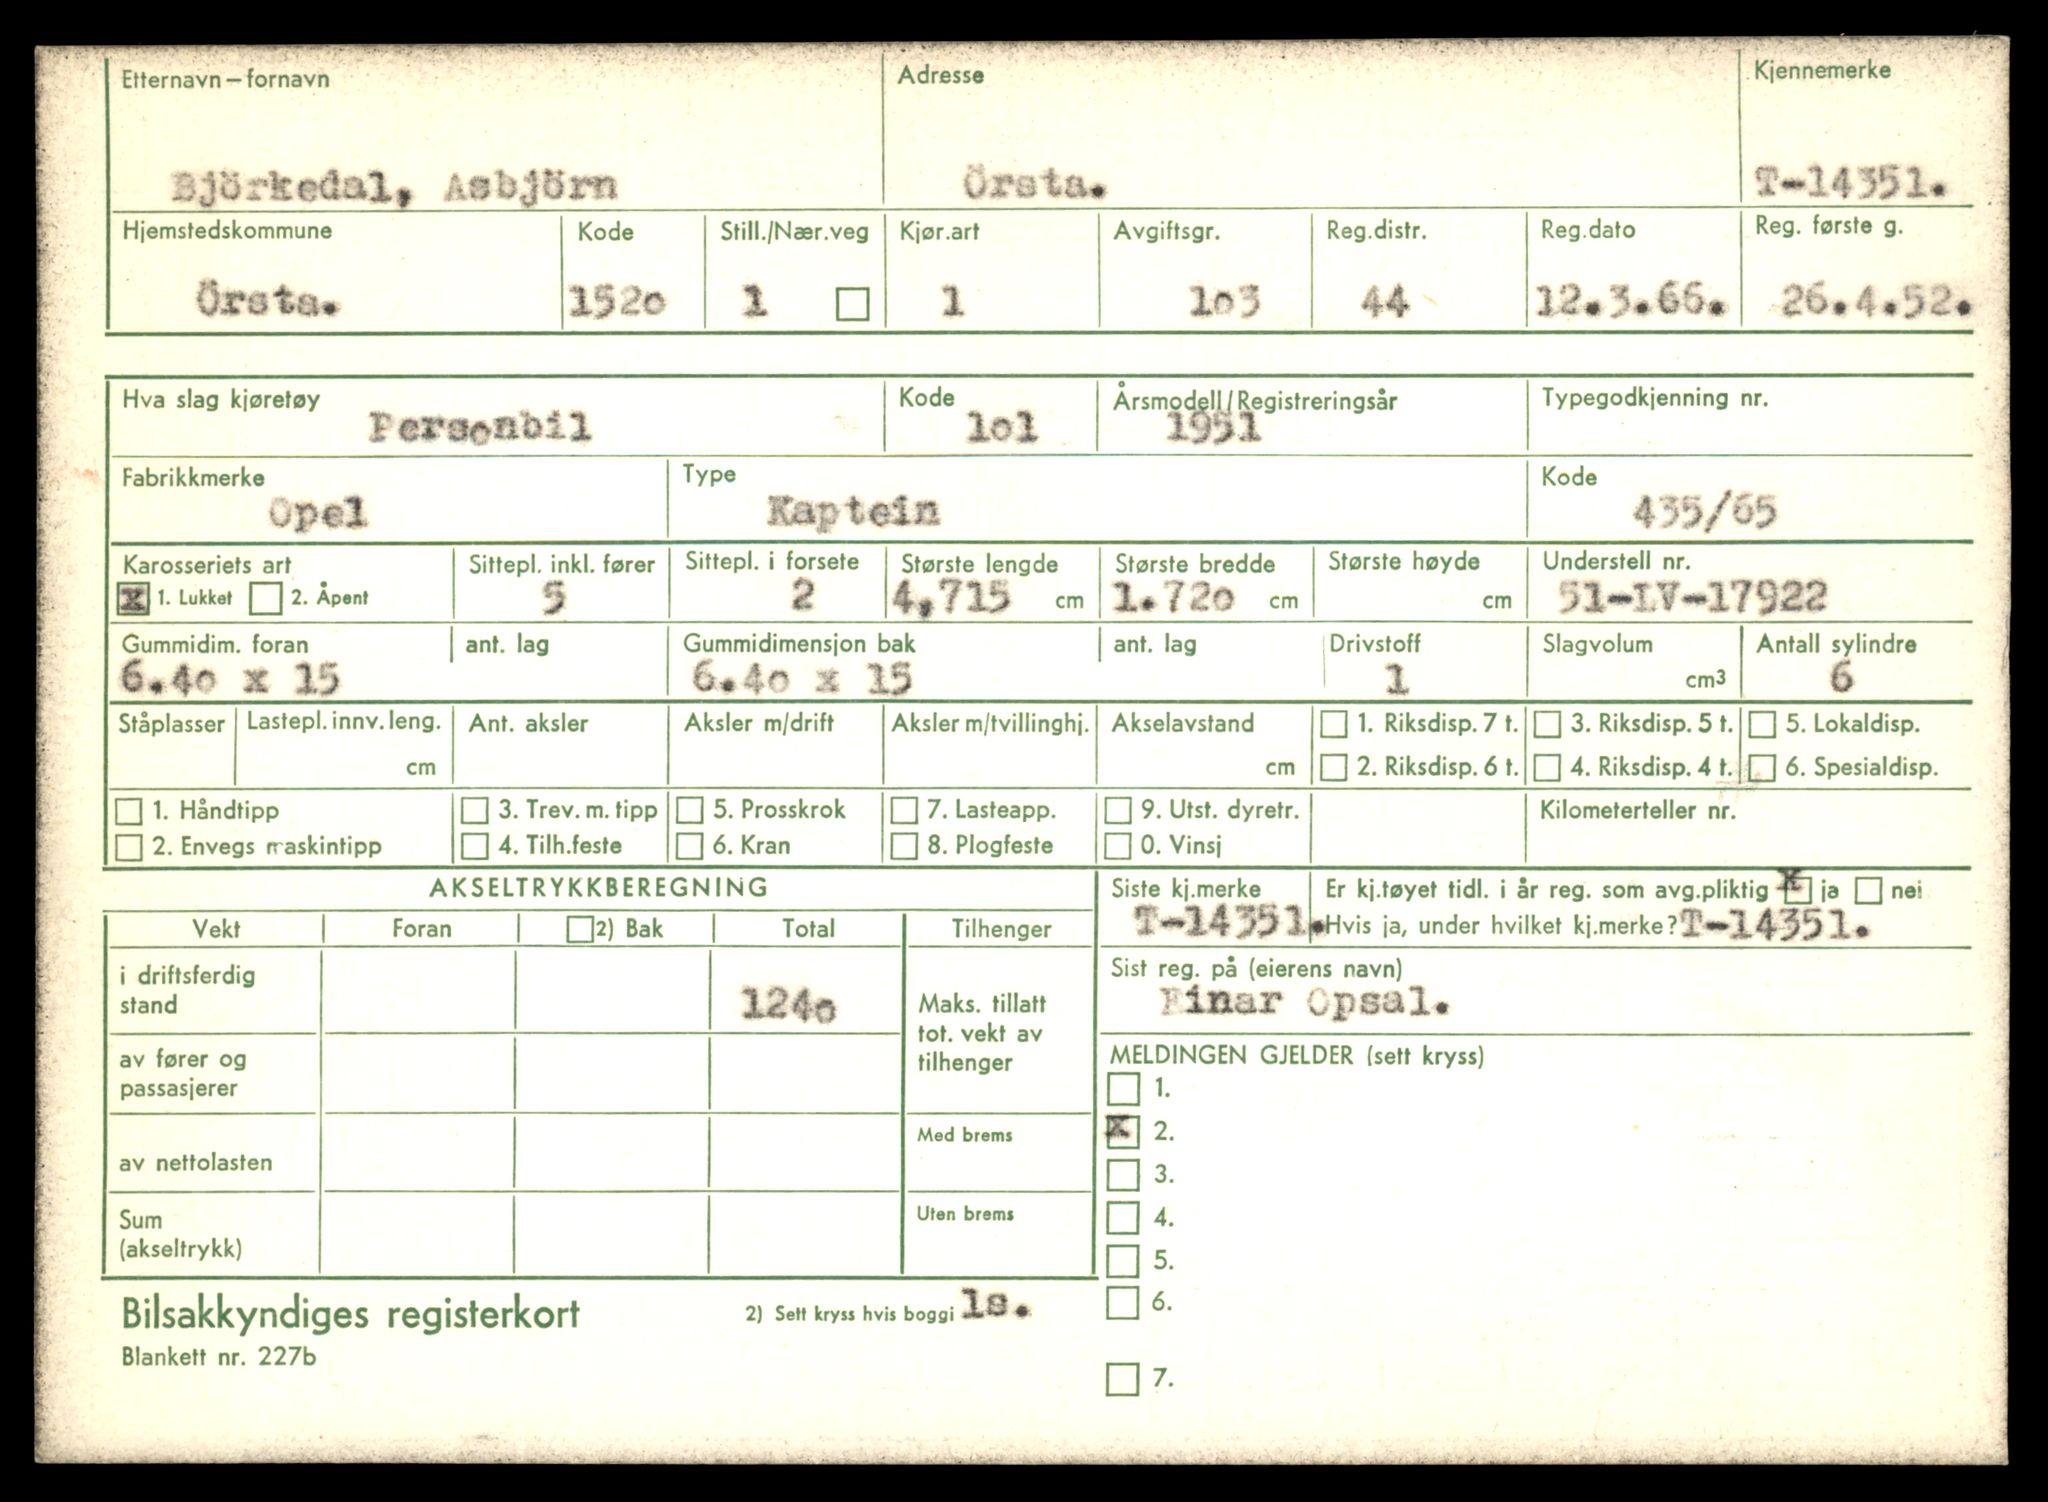 Etternavn – fornavn Adresse Kjennemerke
Björkedal, Asbjörn Örsta. T-14351.
Hjemstedskommune Kode Still./Nær.veg Kjør.art Avgiftsgr. Reg.distr. Reg.dato Reg. første g.
Örsta. 152o 1 1 1o3 44 12.3.66. 26.4.52.
Hva slag kjøretøy Kode Årsmodell/Registreringsår Typegodkjenning nr.
Personbil 1o1 1951
Fabrikkmerke Type Kode
Opel Kaptein 435/65
Karosseriets art Sittepl. inkl. fører Sittepl. i forsete Største lengde Største bredde Største høyde Understell nr.
x 1. Lukket 2. Åpent 5 2 4,715 cm 1.72o cm cm 51-LV-17922
Gummidim. foran ant. lag Gummidimensjon bak ant. lag Drivstoff Slagvolum Antall sylindre
6.4o x 15 6.4o x 15 1 cm3 6
Ståplasser Lastepl. innv. leng. Ant. aksler Aksler m/drift Aksler m/tvillinghj. Akselavstand 1. Riksdisp. 7 t. 3. Riksdisp. 5 t. 5. Lokaldisp.
cm cm 2. Riksdisp. 6 t. 4. Riksdisp. 4 t. 6. Spesialdisp.
1. Håndtipp 3. Trev. m. tipp 5. Prosskrok 7. Lasteapp. 9. Utst. dyretr. Kilometerteller nr.
2. Envegs maskintipp 4. Tilh.feste 6. Kran 8. Plogfeste 0. Vinsj
AKSELTRYKKBEREGNING Siste kj.merke Er kj.tøyet tidl. i år reg. som avg.pliktig x ja nei
T-14351. Hvis ja, under hvilket kj.merke? T-14351.
Vekt Foran 2) Bak Total Tilhenger
Sist reg. på (eierens navn)
i driftsferdig
stand 124o Maks. tillatt Einar Opsal.
tot. vekt av
av fører og tilhenger MELDINGEN GJELDER (sett kryss)
passasjerer 1.
Med brems x 2.
av nettolasten 3.
Sum Uten brems 4.
(akseltrykk) 5.
Bilsakkyndiges registerkort 2) Sett kryss hvis boggi 1s. 6.
Blankett nr. 227b
7.